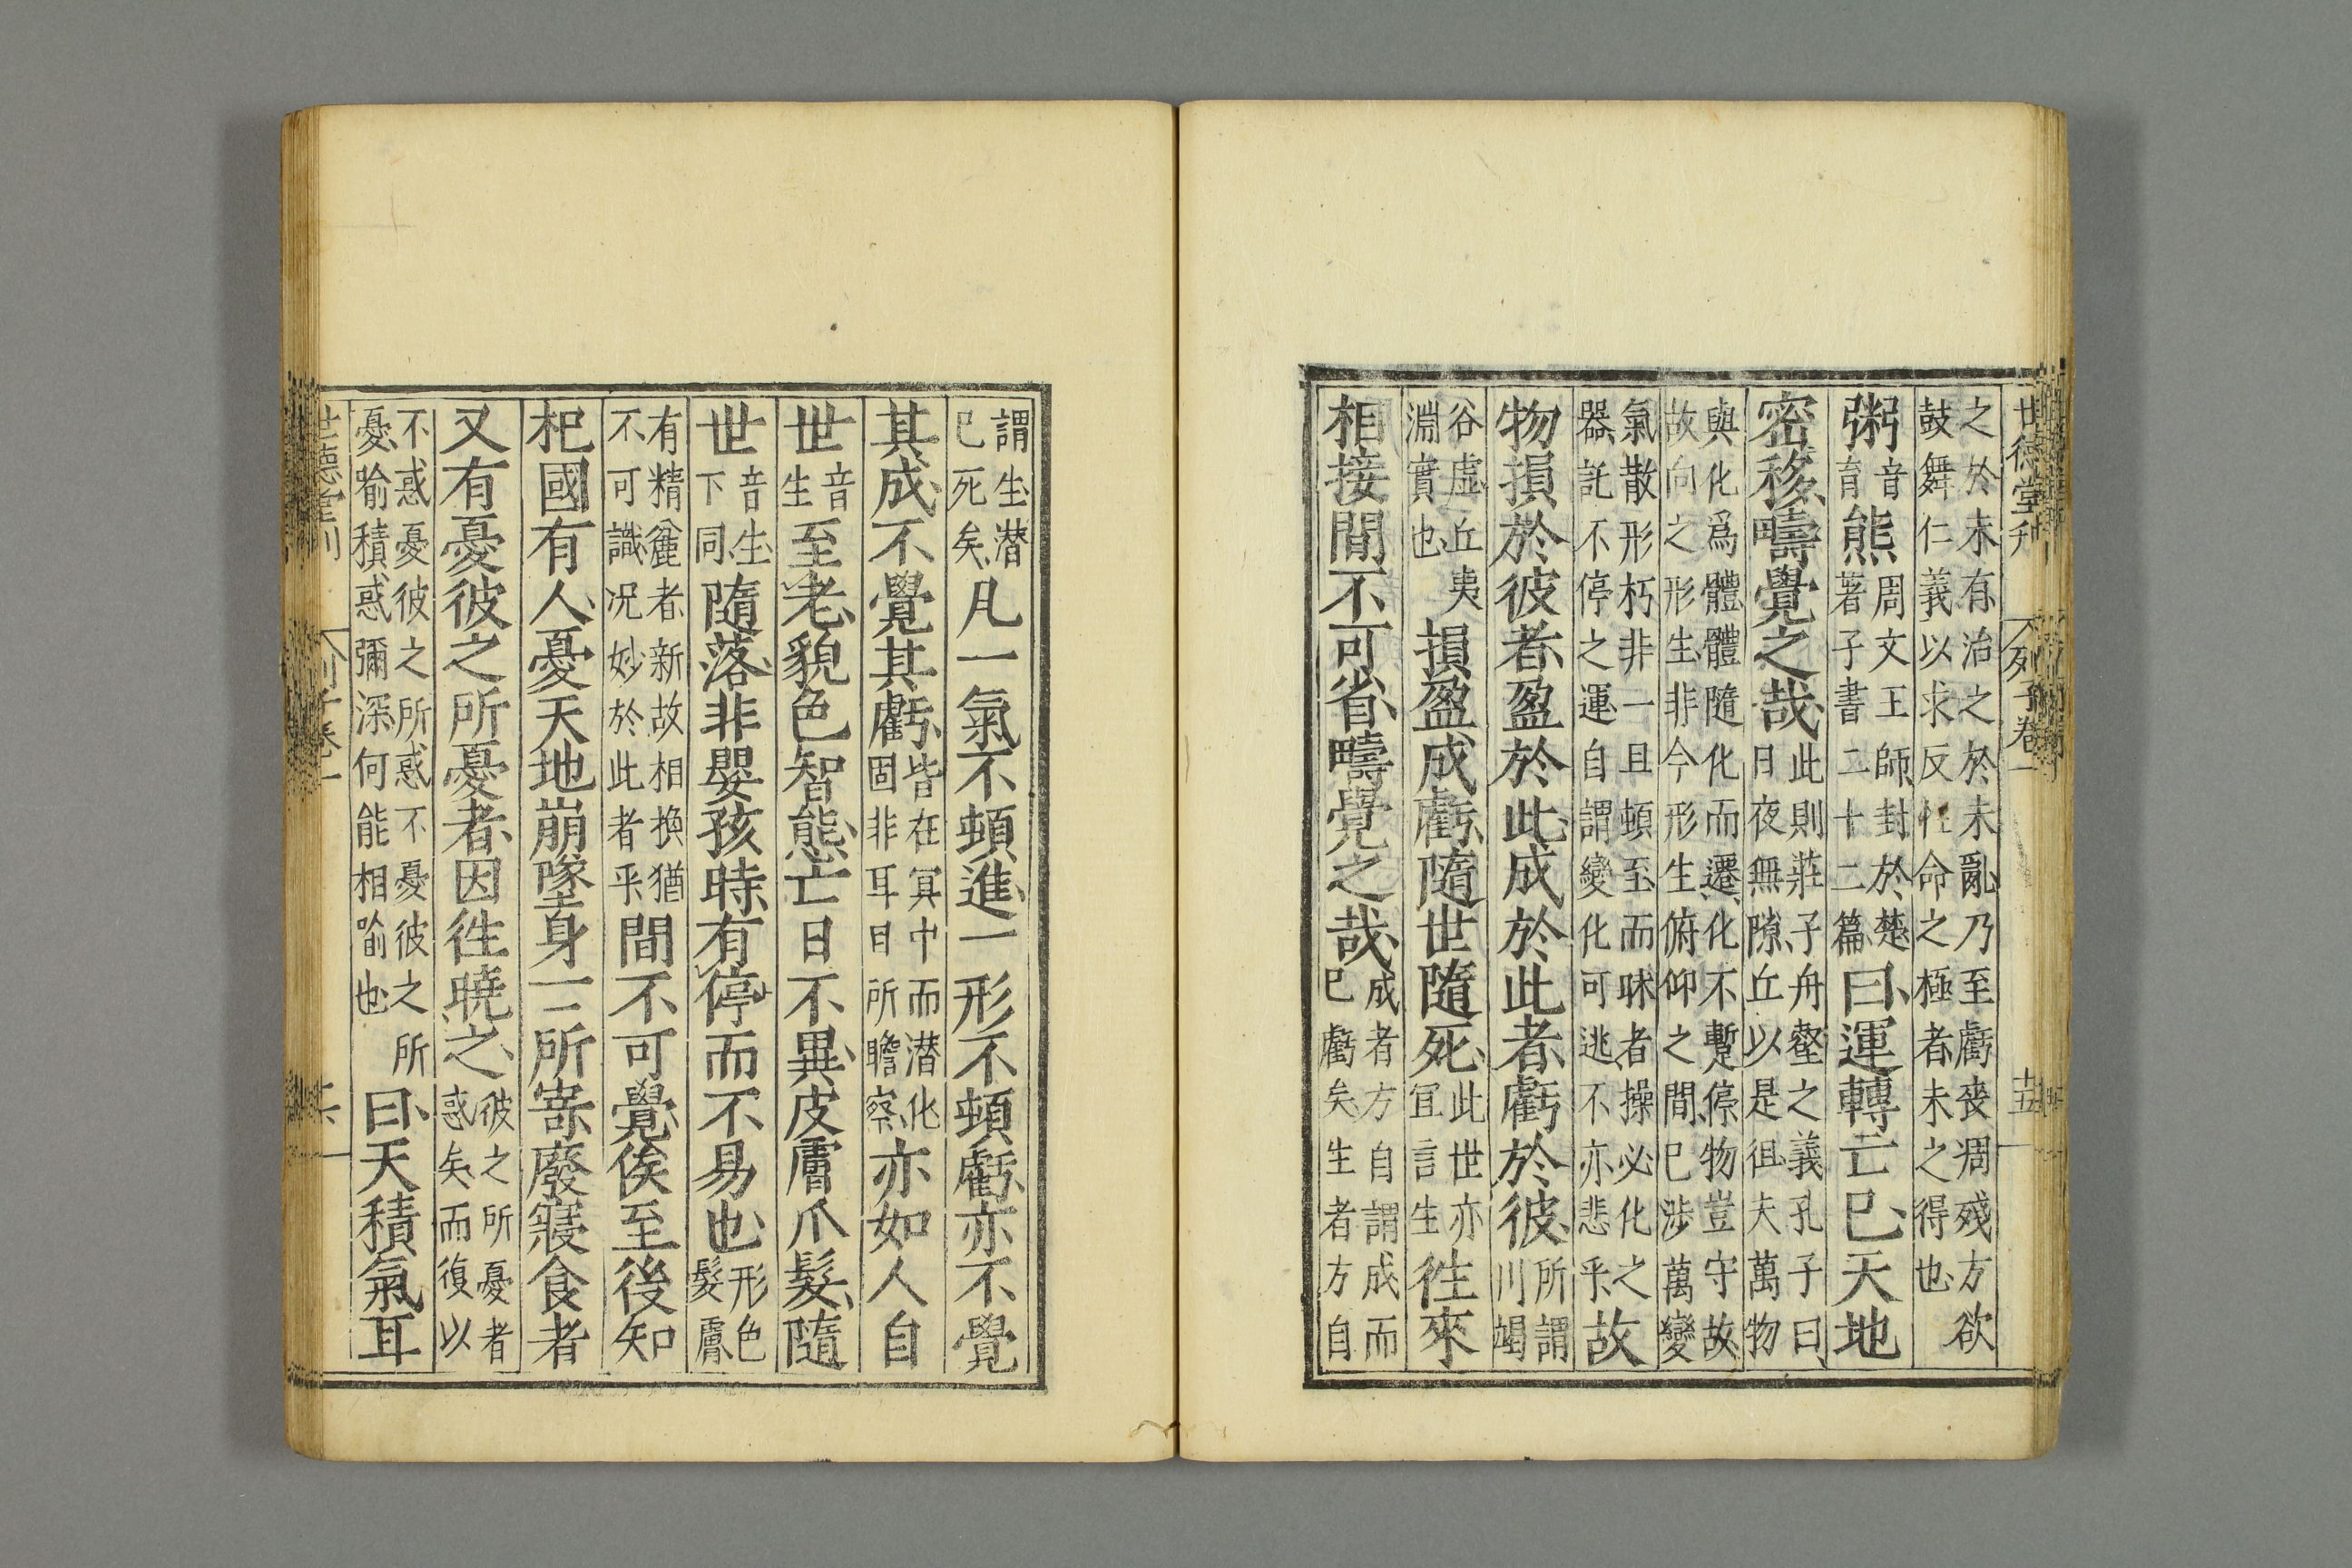 世德堂刊
列子卷一
十五
之於未有治之於未亂乃至虧喪凋殘方欲
鼓舞仁義以求反性命之極者未之得也
粥音育熊周文王師封於楚著子書二十二篇曰運轉亡已天地
密移疇覺之哉此則莊子舟壑之義孔子曰日夜無隙丘以是徂夫萬物
與化爲體體隨化而遷化不暫停物豈守故
故向之形生非今形生俯仰之間已涉萬變
氣散形朽非一旦頓至而昧者操必化之
器託不停之運自謂變化可逃不亦悲乎故
物損於彼者盈於此成於此者虧於彼所謂川竭
谷虛丘夷淵實也損盈成虧隨世隨死此世亦宜言生徃來
相接間不可省疇覺之哉成者方自謂成而已虧矣生者方自
謂生潜已死矣凡一氣不頓進一形不頓虧亦不覺
其成不覺其虧皆在冥中而潜化固非耳目所瞻察亦如人自
世音生至老貌色智態亡日不異皮膚爪髮隨
世音生下同隨落非嬰孩時有停而不易也形色髮膚
有精麄者新故相換猶不可識况妙於此者乎間不可覺俟至後知
杞國有人憂天地崩墜身亡所寄廢寢食者
又有憂彼之所憂者因徃曉之彼之所憂者惑矣而復以
不惑憂彼之所惑不憂彼之所憂喻積惑彌深何能相喻也曰天積氣耳
世德堂刊
列子卷一
十六